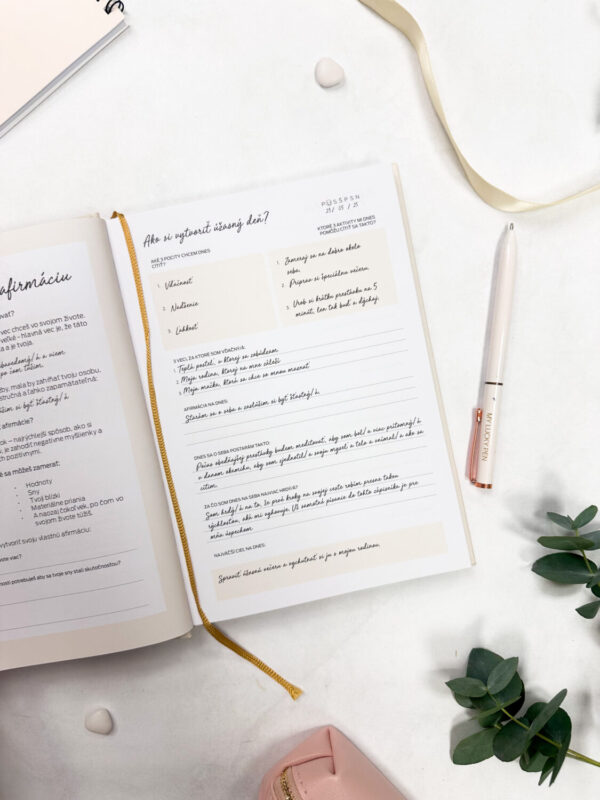 afirmáciu
vať?
vec chceš vo svojom živote.
veľké - hlavná vec je, že táto
a a je tvoja.
by, mala by zahŕňať tvoju osobu,
stručná a ľahko zapamätateľná:
lúžim si byť šťastný/á
afirmácie?
ok – najrýchlejší spôsob, ako si
y, je zahodiť negatívne myšlienky a
h pozitívnymi.
é sa môžeš zamerať:
Hodnoty
Sny
Tvoji blízki
Materiálne priania
A naozaj čokoľvek, po čom vo
svojom živote túžiš.
vytvoriť svoju vlastnú afirmáciu:
te viac?
nosti potrebuješ aby sa tvoje sny stali skutočnosťou?
Ako si vytvoriť úžasný deň?
P U S Š P S N
25 / 05 / 25
AKÉ 3 POCITY CHCEM DNES
CÍTIŤ?
1. Vďačnosť
2. Nadšenie
3. Ľahkosť
KTORÉ 3 AKTIVITY MI DNES
POMÔŽU CÍTIŤ SA TAKTO?
1. Zameraj sa na dobro okolo
seba.
2. Priprav si špeciálnu večeru.
3. Urob si krátku prestávku na 5
minút, len tak buď a dýchaj.
3 VECI, ZA KTORÉ SOM VĎAČNÝ/Á:
1. Teplá posteľ, v ktorej sa zobúdzam
2. Moja rodina, ktorej na mne záleží
3. Moja mačka, ktorá sa chce so mnou maznať
AFIRMÁCIA NA DNES:
Starám sa o seba a zaslúžim si byť šťastný/á
DNES SA O SEBA POSTARÁM TAKTO:
Počas obedňajšej prestávky budem meditovať, aby som bol/a viac prítomný/á
v danom okamihu, aby som zjednotil/a svoju myseľ a telo a vnímal/a ako sa
cítim.
ZA ČO SOM DNES NA SEBA NAJVIAC HRDÝ/Á?
Som hrdý/á na to, že prvé kroky na svojej ceste robím presne takou
rýchlosťou, aká mi vyhovuje. Už samotné písanie do tohto zápisníka je pre
mňa úspechom
NAJVÄČŠÍ CIEĽ NA DNES:
Spraviť úžasnú večeru a vychutnať si ju s mojou rodinou.
MY LUCKY PEN